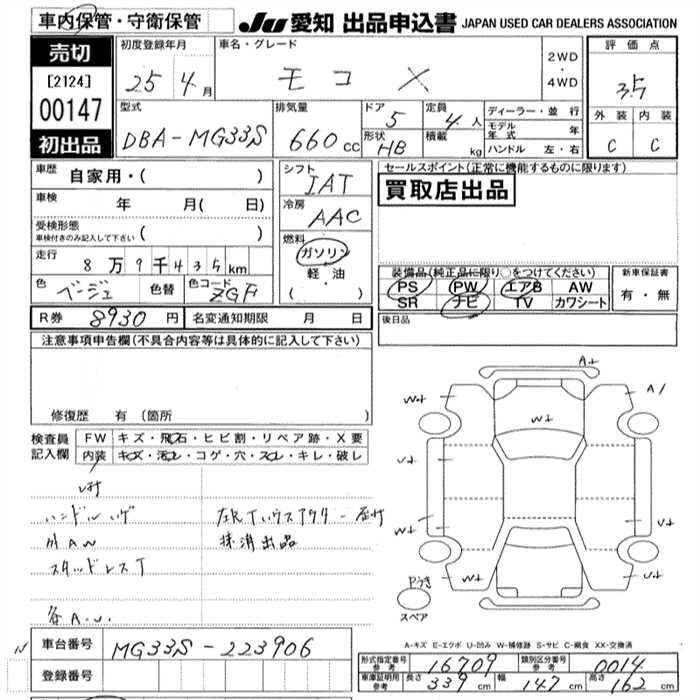 車内保管・守衛保管
JU 愛知 出品申込書 JAPAN USED CAR DEALERS ASSOCIATION
売切
[2124]
00147
初出品
初度登録年月
25 4月
車名・グレード
モコ X
2WD
・
4WD
評価点
3.5
外装 内装
C C
型式
DBA-MG33S
排気量
660 cc
ドア
5
形状
HB
定員
4人
積載
kg
ディーラー・並行
モデル年式 年
ハンドル 左・右
車歴 自家用・( )
車検 年 月( 日)
受検形態
車検付きのみ記入して下さい ( )
走行 8万9千435km
色 ベージュ 色替 色コード ZGF
シフト
IAT
冷房
AAC
燃料
ガソリン
軽・油
( ・ )
セールスポイント(正常に機能するものに限ります)
買取店出品
装備品(純正品に限り○をつけてください)
PS PW エアB AW
SR ナビ TV カワシート
新車保証書
有・無
R券 8930円 名変通知期限 月 日
後日品
注意事項申告欄(不具合内容等は具体的に記入して下さい)
修復歴 有(箇所 )
検査員
記入欄
FW キズ・飛石・ヒビ割・リペア跡・X要
内装 キズ・汚レ・コゲ・穴・スレ・キレ・破レ
ハンドルハゲ
外AW
スタッドレスT
各A.U.
抹消出品
A+
W+
A1
W+
U+
U+
W+
U+
W+
W+
Pうき
スペア
A-キズ E-エクボ U-凹み W-補修跡 S-サビ C-腐食 XX-交換済
車台番号 MG33S-223906
登録番号
形式指定番号
参考
16709
類別区分番号
参考
0014
車庫証明用
参考
長さ 339 cm 幅 147 cm 高さ 162 cm